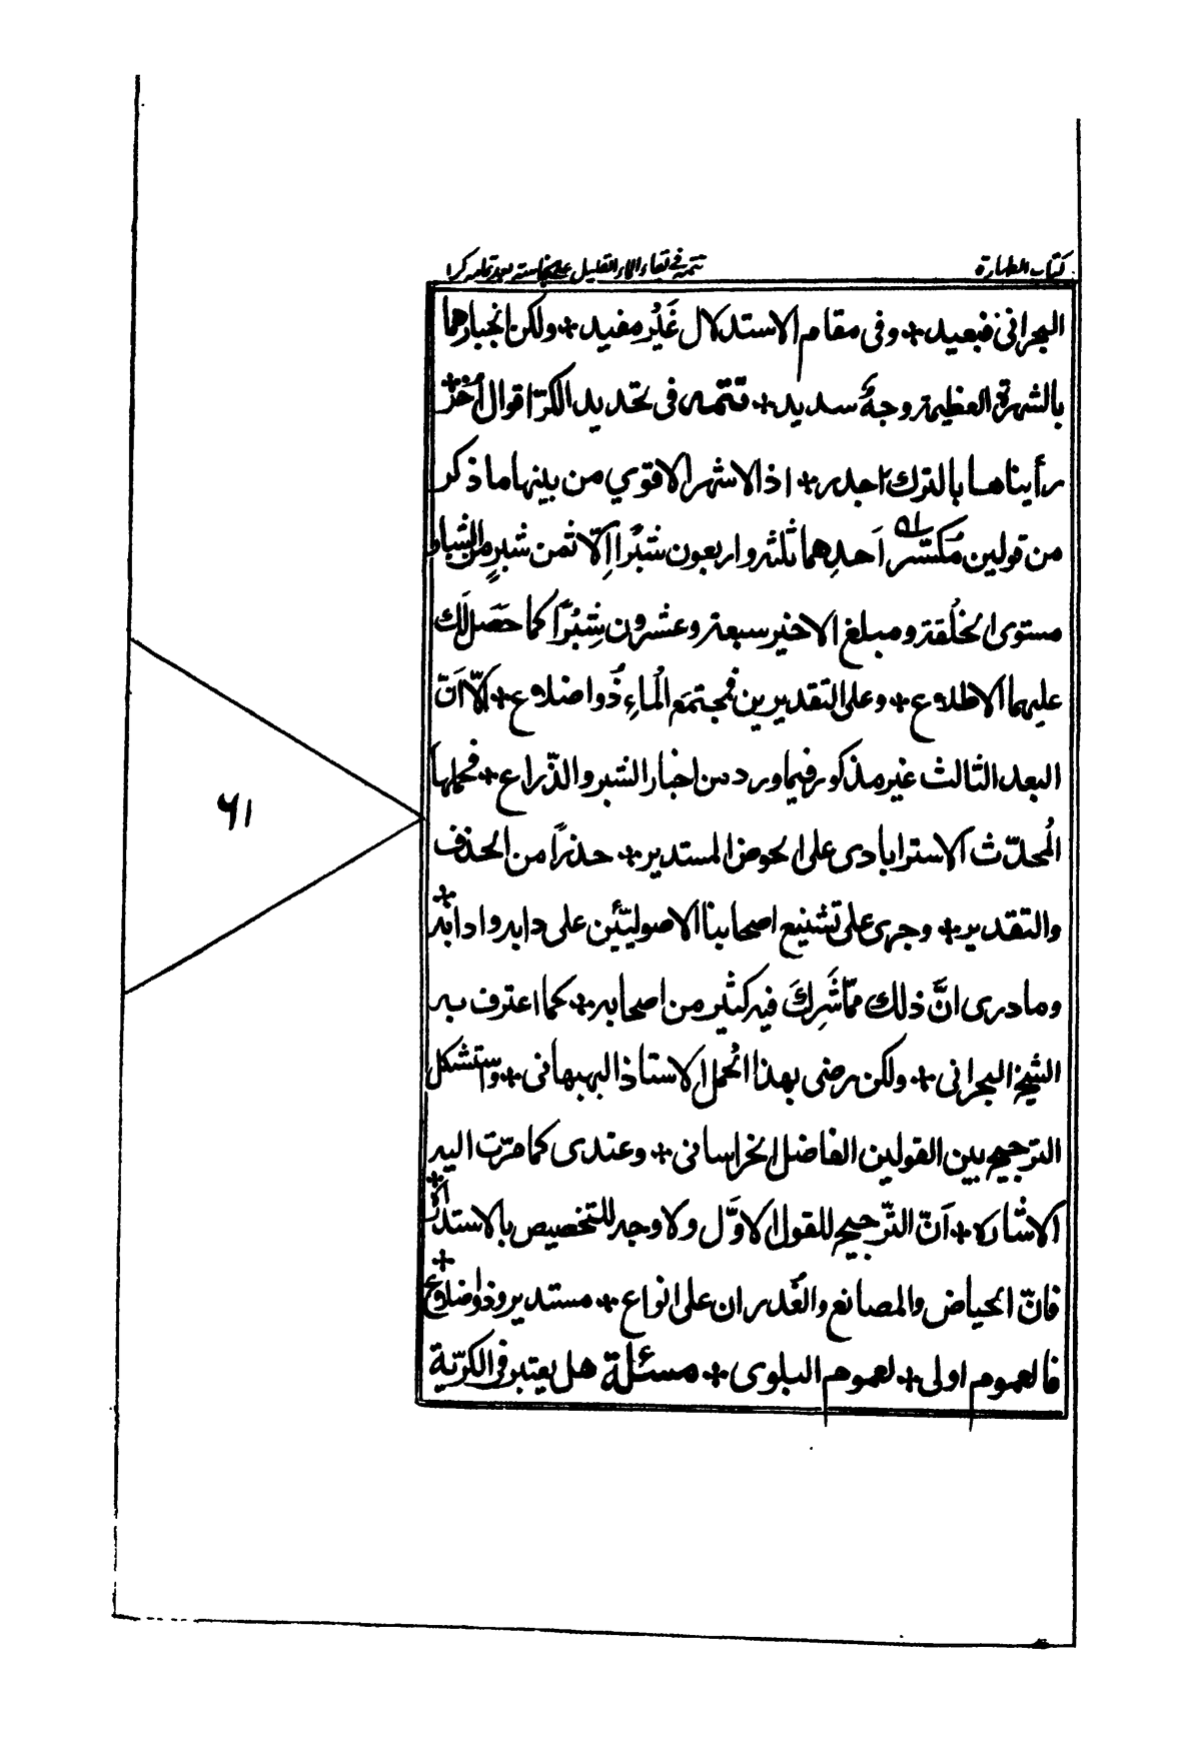 كتاب الطهارة
تتمه فى بقاء الماء القليل على نجاسته بعد تمامه كرا
البحرانى فبعيد + وفى مقام الاستدلال غَيْر مفيد + ولكن انجبارهما
بالشهرة العظيمة وجهٌ سديد + تتمه فى تحديد الكرّ اقوال اُخَرُ +
رأيناها بالترك اجدر + اذ الاشهر الاقوي من بينها ما ذكر
من قولين مُكسّر اَحدِهما ثلثة واربعون شبْرا اِلّا ثمن شبرٍ من اشبار
مستوى الخلْقة ومبلغ الاخير سبعة وعشرون شِبْرًا كما حَصَل لَك
عليهما الاطلاع + وعلى التقديرين فمجتمَع الْماءِ ذُو اضلاع + اِلّا اَنّ
البعد الثالث غير مذكور فيما ورد من اخبار الشبر والذّراع + فحملها
الُمحدّث الاسترابادى على الحوض المستدير + حذرًا من الحذف
والتقدير + وجرى على تشنيع اصحابنا الاصوليّين على دابه وادابه +
وما درى انَّ ذلك ممّا شَرِكَ فيه كثير من اصحابه + كما اعترف به
الشيخ البحرانى + ولكن رضى بهذا الحمل الاستاذ البهبهانى + واستشكل
الترجيح بين القولين الفاضل الخراسانى + وعندى كما مرّت اليه
الاشاره + اَنّ التّرجيح للقول الاوَّل ولا وجه للتخصيص بالاستداره +
فانّ الحياض والمصانع والغُدران على انواع + مستدير وذو اضلاع +
فالعموم اولى + لعموم البلوى + مسئلة هل يعتبر فى الكرّية
٦١